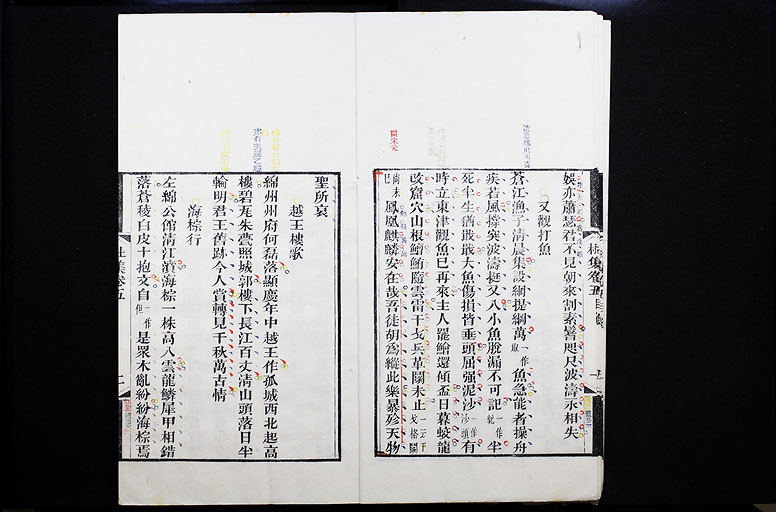 娛亦蕭瑟君不見朝來割素鬐咫尺波濤永相失
又觀打魚
蒼江漁子清晨集設網提綱萬一作取魚急能者操舟
疾若風撐突波濤挺叉入小魚脫漏不可記一作紀半
死半生猶戢戢大魚傷損皆垂頭屈强泥沙一作沙頭有
時立東津觀魚已再來主人罷鱠還傾盃日暮蛟龍
改窟穴山根鱣鮪隨雲雷干戈兵革鬭未止一云干戈格鬭
尚未已鳳凰麒麟安在哉吾徒胡為縱此樂暴殄天物
聖所哀
越王樓歌
綿州州府何磊落顯慶年中越王作孤城西北起高
樓碧瓦朱甍照城郭樓下長江百丈清山頭落日半
輪明君王舊跡今人賞轉見千秋萬古情
海棕行
左綿公館清江濆海棕一株高入雲龍鱗犀甲相錯
落蒼稜白皮十抱文自一作但是眾木亂紛紛海棕焉
杜集卷五